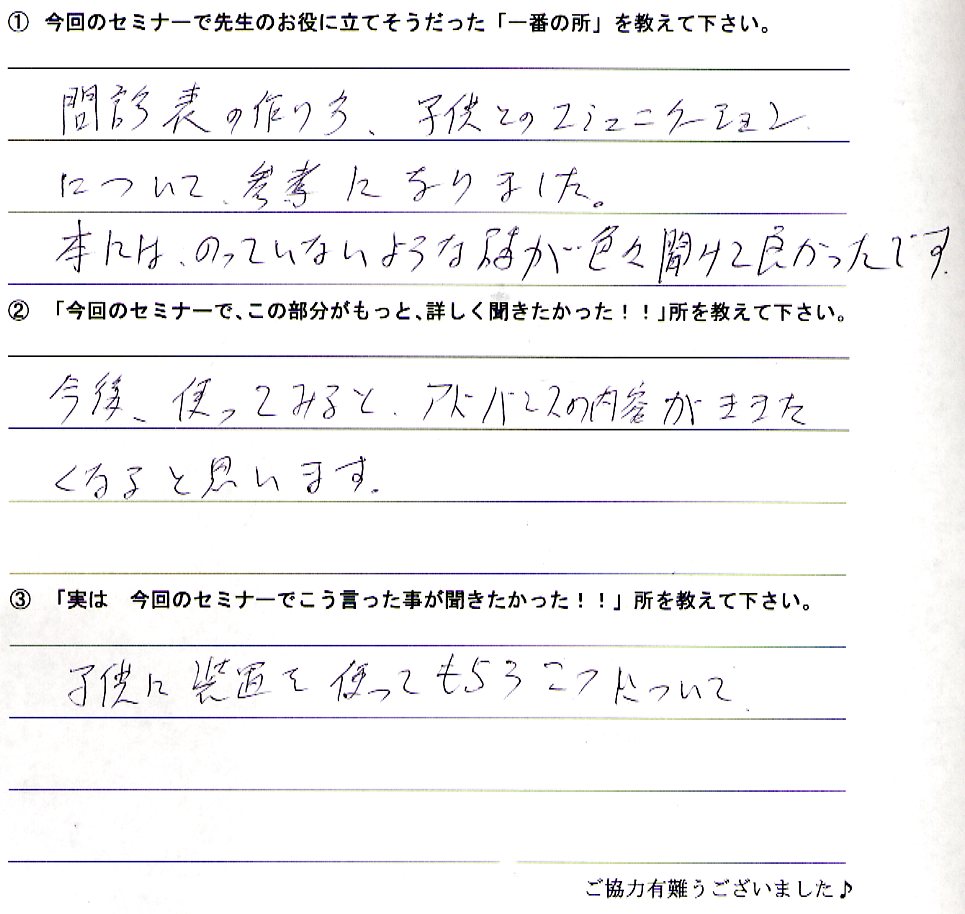 ① 今回のセミナーで先生のお役に立てそうだった「一番の所」を教えて下さい。
問診表の作り方、子供とのコミュニケーション
について、参考になりました。
本には、のっていないような話が色々聞けて良かったです。
② 「今回のセミナーで、この部分がもっと、詳しく聞きたかった！！」所を教えて下さい。
今後、使ってみると、アドバンスの内容がききた
くなると思います。
③ 「実は 今回のセミナーでこう言った事が聞きたかった！！」所を教えて下さい。
子供に装置を使ってもらうコツについて
ご協力有難うございました♪